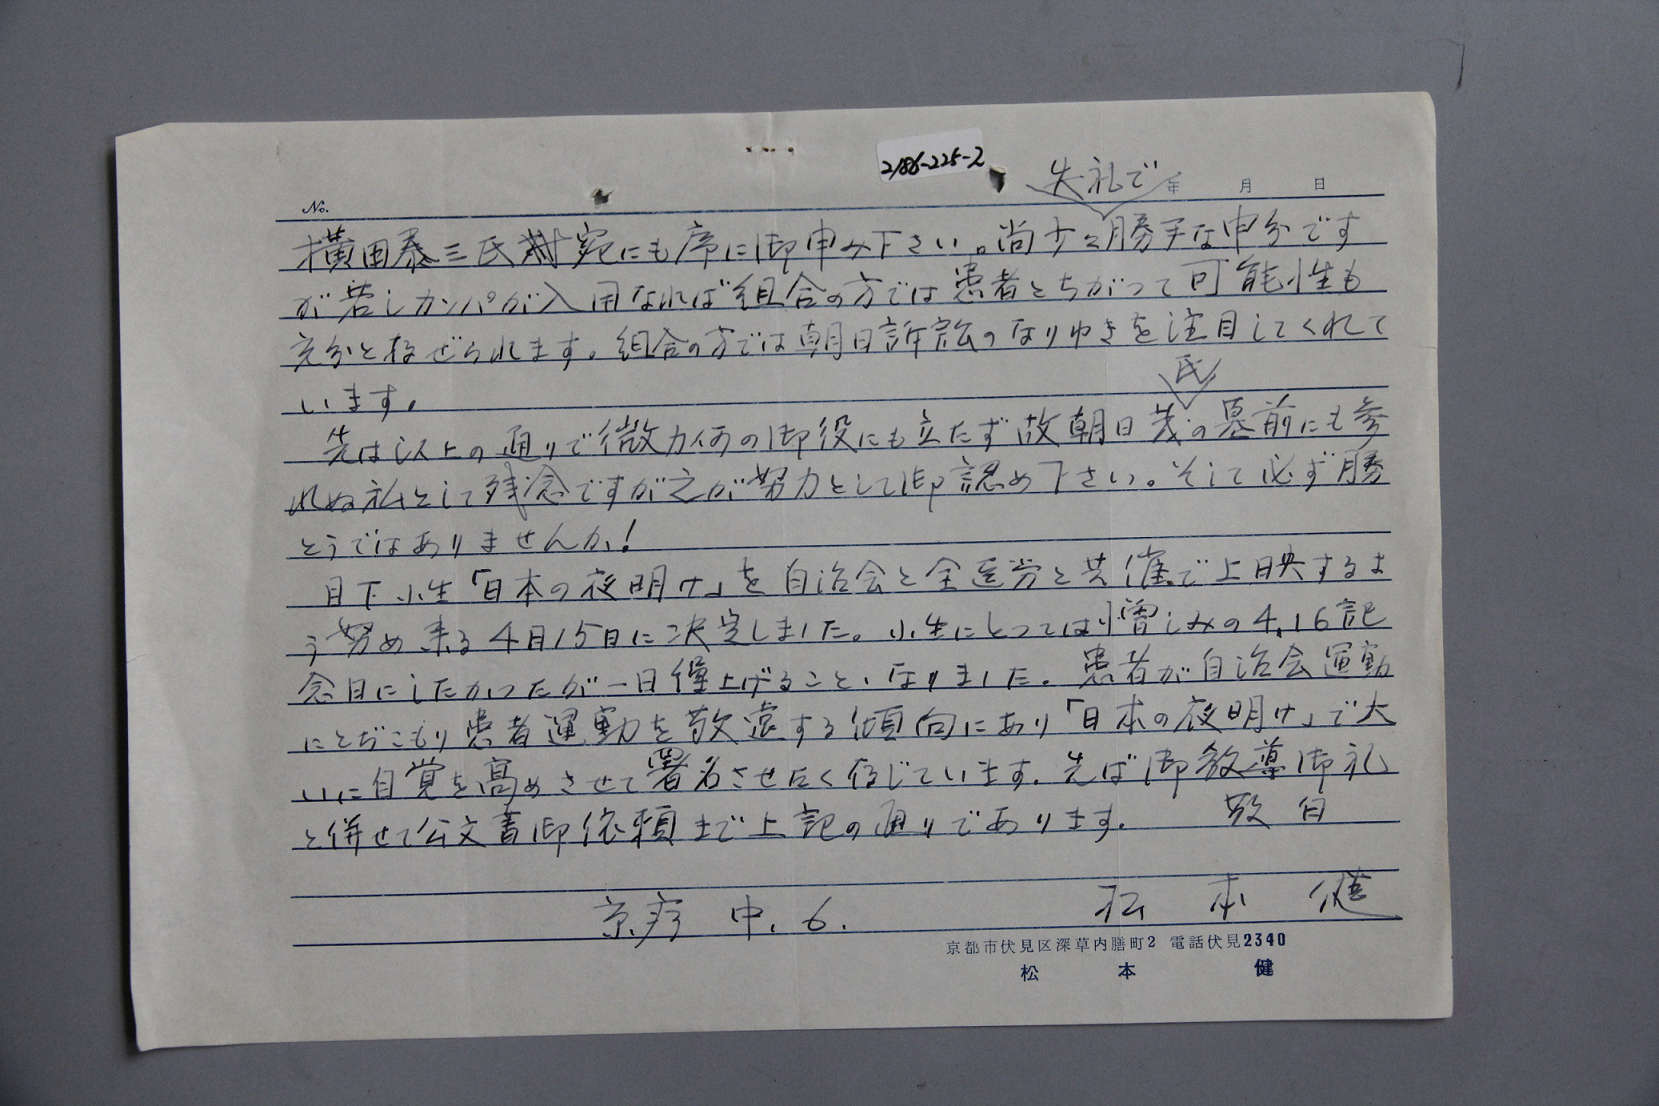 2186-225-2
失礼で
No. 年 月 日
横田泰三氏宛にも序に御申み下さい。尚少々勝手な申分です
が若しカンパが入用なれば組合の方では患者とちがって可能性も
充分と存ぜられます。組合の方では朝日訴訟のなりゆきを注目してくれて
います。
氏
先は以上の通りで微力何の御役にも立たず故朝日茂の墓前にも参
れぬ私として残念ですが之が努力として御認め下さい。そして必ず勝
とうではありませんか!
目下小生「日本の夜明け」を自治会と全医労と共催で上映するよ
う努め来る4月15日に決定しました。小生にとっては憎しみの4.16記
念日にしたかったが一日繰上げることゝなりました。患者が自治会運動
にとぢこもり患者運動を敬遠する傾向にあり「日本の夜明け」で大
いに自覚を高めさせて署名させたく信じています。先ば御教導御礼
と併せて公文書御依頼まで上記の通りであります。 敬白
京療 中.6. 松本健
京都市伏見区深草内膳町2 電話伏見2340
松本健